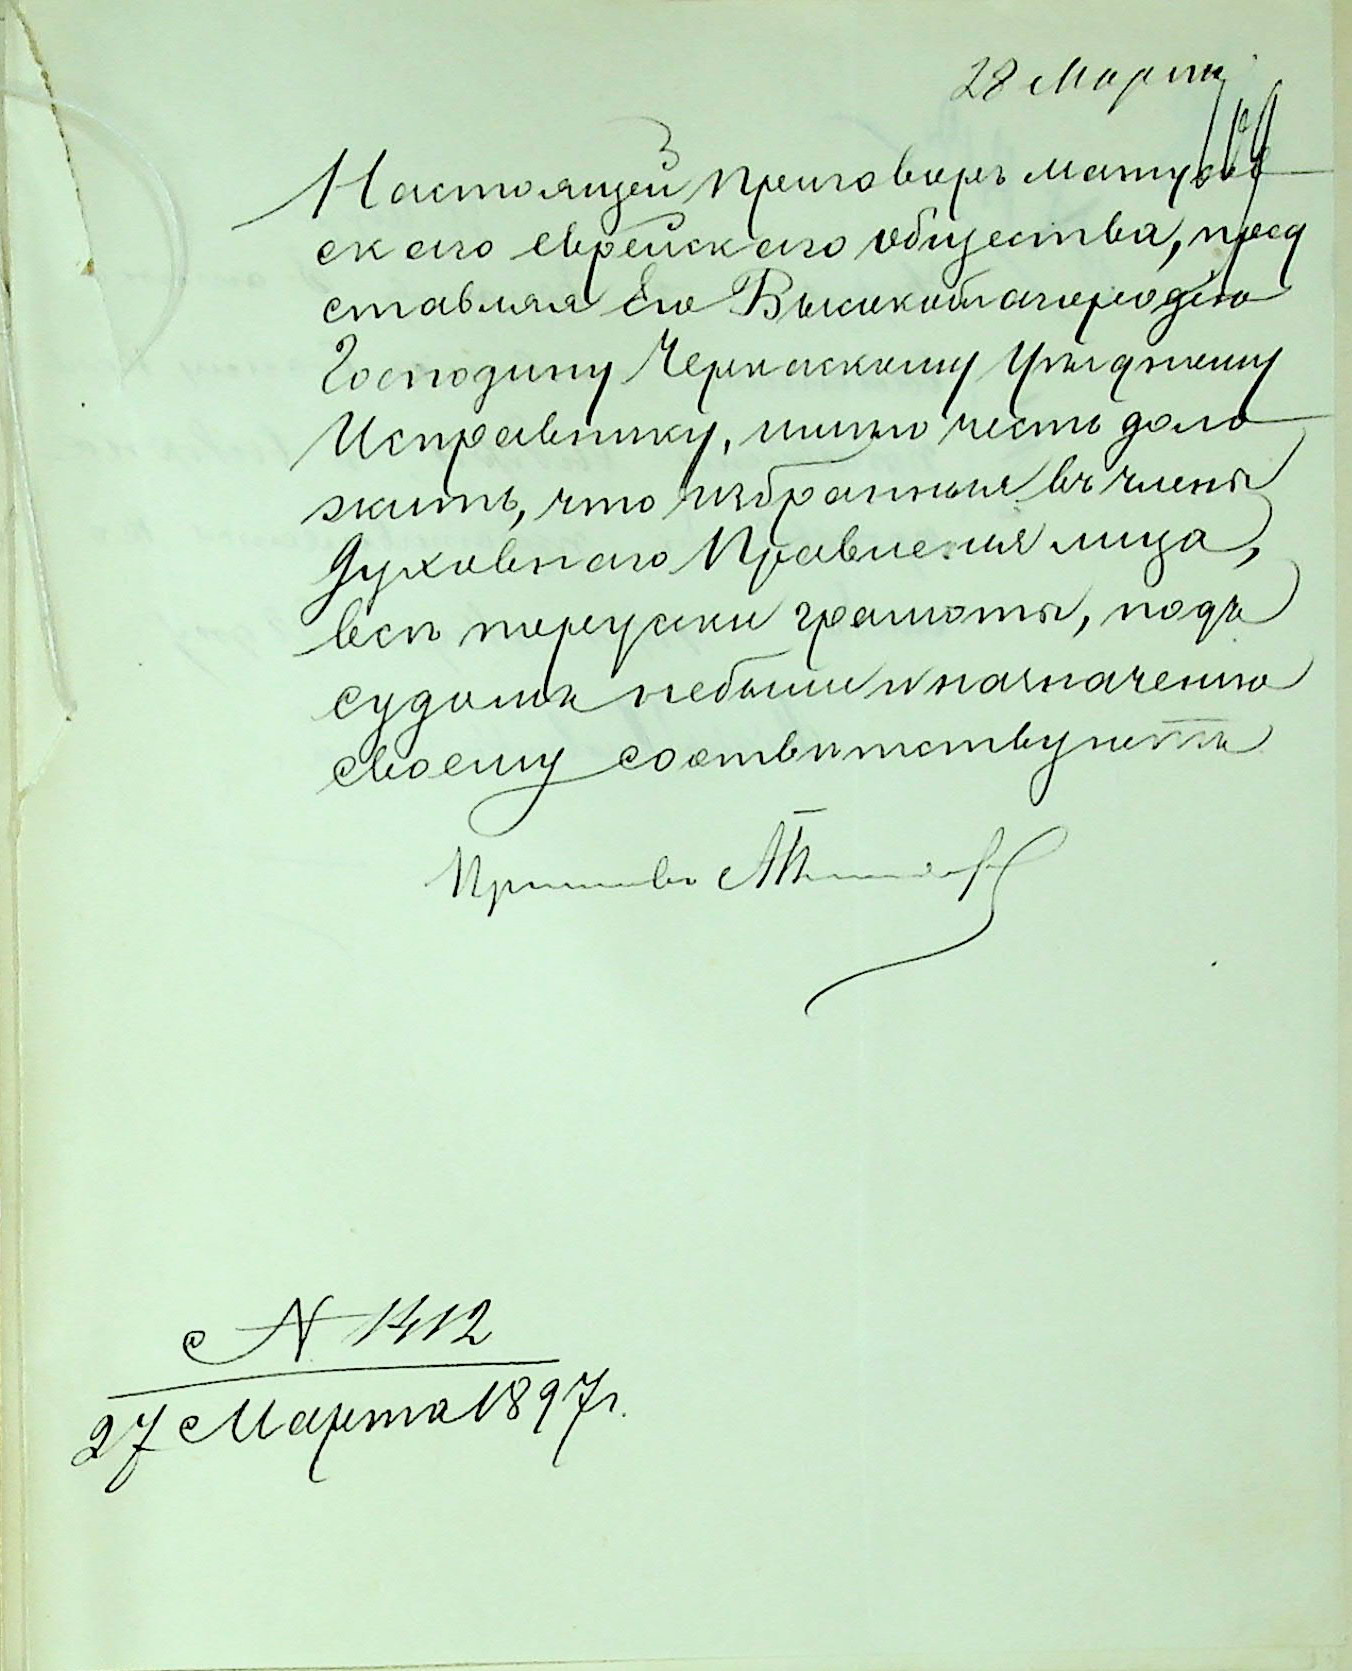 28 Марта
Настоящей приговоръ матусов
скаго еврейскаго общества, пред
ставляя Его Высокоблагородію
Господину Черкаскому Уѣздному
Исправнику, имѣю честь доло
жить, что избранныя въ члены
Духовнаго Правленія лица,
всѣ порусски грамотны, подъ
судомъ небыли и назначенію
своему соотвѣтствуютъ
Приставъ
№ 1412
27 Марта 1897 г.